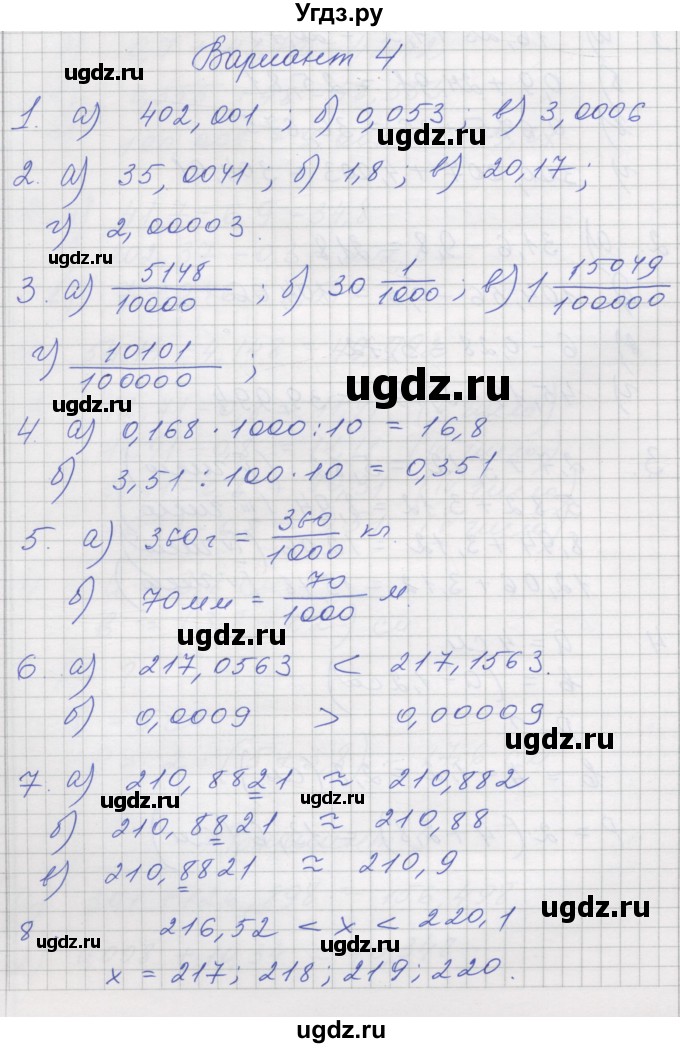 Угдз.ру
Вариант 4
ugdz.ru
1. а) 402,001 ; б) 0,053, в) 3,0006
ugdz.ru
ugdz.ru
2. а) 35,0041 ; б) 1,8 ; в) 20,17 ;
г) 2,00003.
ugdz.ru
ugdz.ru
3. а) 5148/10000 ; б) 30 1/1000 , в) 1 15049/100000
г) 10101/100000 ;
ugdz.ru
ugdz.ru
4 а) 0,168 · 1000 : 10 = 16,8
б) 3,51 : 100 · 10 = 0,351
ugdz.ru
ugdz.ru
5. а) 360 г = 360/1000 кг.
б) 70 мм = 70/1000 м
ugdz.ru
6 а) 217,0563 < 217,1563.
ugdz.ru
б) 0,0009 > 0,00009
ugdz.ru
7. а) 210,8821 ≈ 210,882
ugdz.ru
ugdz.ru
б) 210,8821 ≈ 210,88
ugdz.ru
в) 210,8821 ≈ 210,9
ugdz.ru
8 216,52 < x < 220,1
ugdz.ru
ugdz.ru
x = 217; 218; 219; 220.
ugdz.ru
ugdz.ru